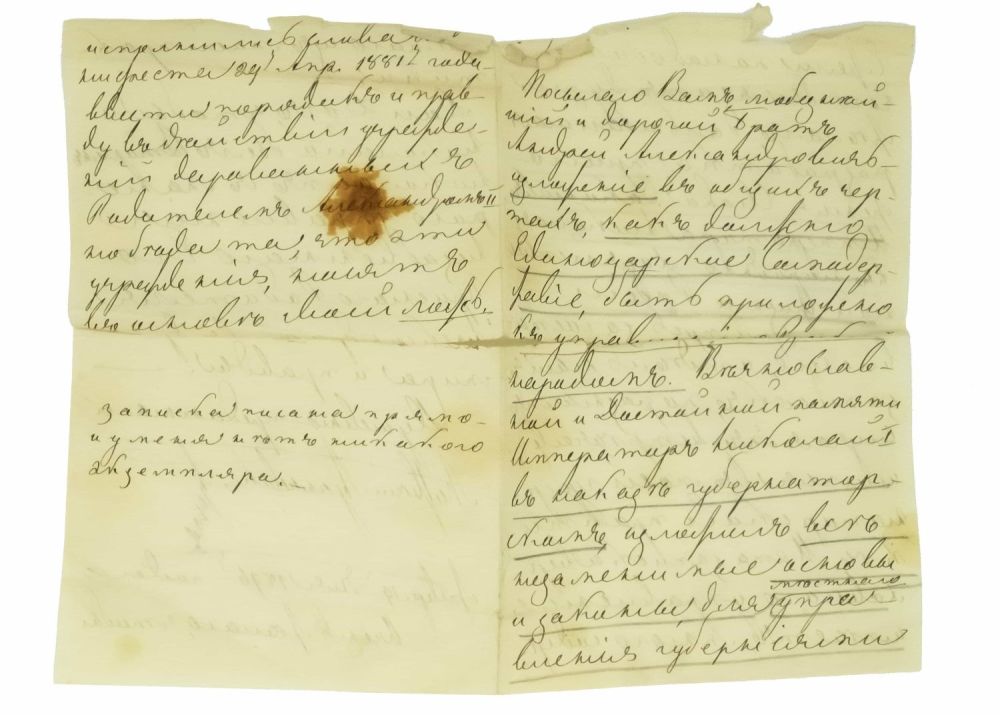 исполнились слова
нифеста 29го Апр. 1881го года:
ввести порядокъ и прав-
ду въ дѣйствіи учрежде-
ній дарованныхъ
Родителемъ Александромъ II
но бѣда та, что эти
учрежденія, имѣютъ
въ основѣ своей ложь.
записка писана прямо-
и у меня нѣтъ никакого
экземпляра.
Посылаю Вамъ, любезнѣй-
шій и дорогой Братъ
Андрей Александровичъ-
изложеніе въ общихъ чер-
тахъ, какъ должно
Единоцарское Самодер-
жавіе, быть приложено
къ управ
народомъ. Вѣчнославной
ной и Достойной памяти
Императоръ Николай I
въ наказѣ губернатор-
скомъ, изложилъ всѣ
незамѣнимые основы
и законы, для мѣстнаго упра
вленія губерніями